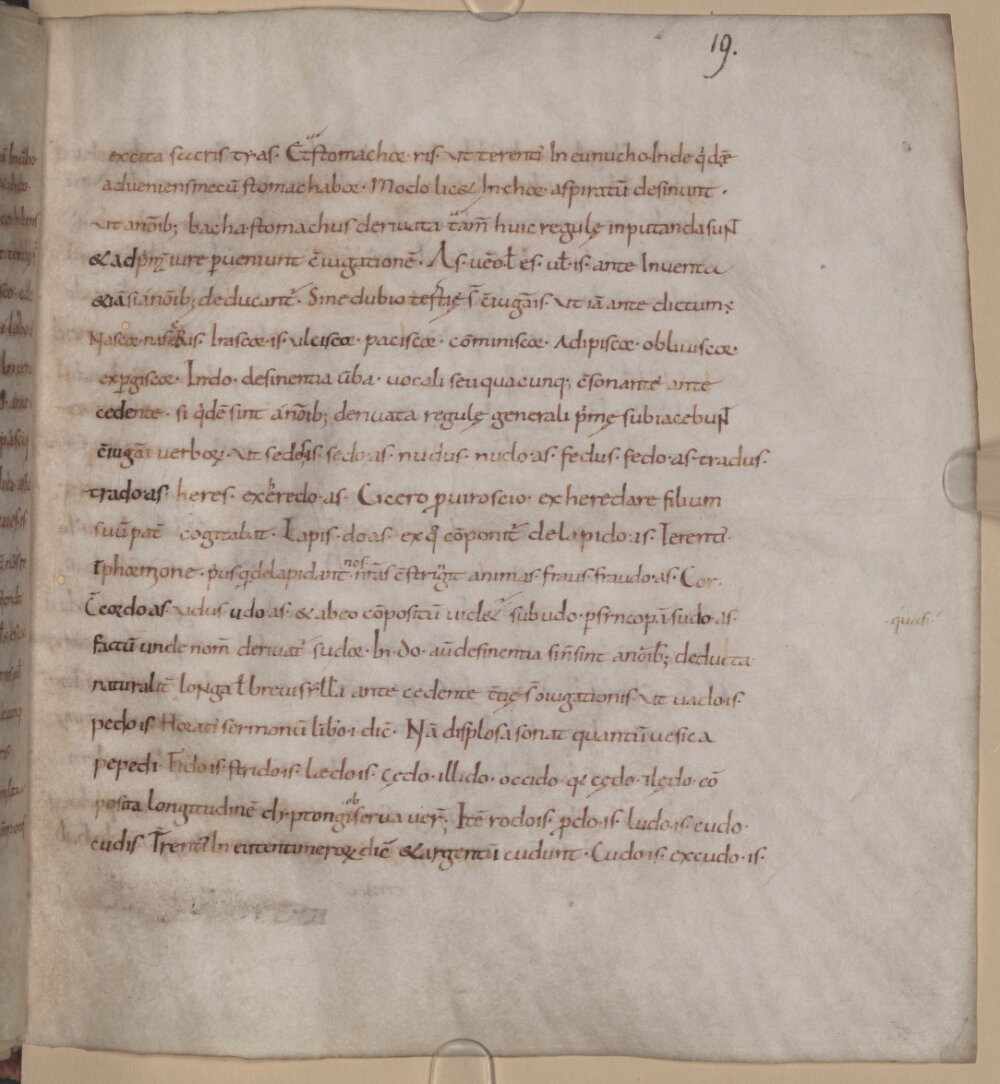 19.
excita sacris tyas. Et stomachor. ris. ut terenti In eunucho. Inde qdē
adveniens mecū stomachabar. Modo lic& In chor aspiratū desinunt.
ut a nōib; bacha. stomachus derivata tam̄ huic regulę inputanda suNT
& ad p̄mę iure pveniunt c̄iugationē. As. v̄o ł es. uł. is. ante Inventa
& iā si a nōib; deducant̄. Sine dubio tertię s̄ c̄iugāis. ut iā ante dictum ę
Nascor. nasceRis. Irascor. is. ulciscor. paciscor. cōminiscor. Adipiscor. obliviscor.
expgiscor. In do. desinentia ūba. vocali seu quacunq; c̄sonante ante
cedente. si qdē sint a nōib; derivata regulę generali p̄mę subiacebuNT
c̄iugāi verborū. ut sedes. sedo. as. nudus. nudo. as. fedus. fedo. as. tradus.
trado. as. heres. exheredo. as. Cicero p viroscio. ex heredare filium
suū pat̄ cogitabat. Lapis. do. as. ex q cōponit̄ delapido. as. Terenti.
Iphormone. p̄usq delapidant nos nr̄as c̄strigit animas. fraus. fraudo. as. Cor.
C̄cordo. as. udus udo. as. & ab eo cōpositū vide& subudo. p sincopā sudo. as.
factū unde nom̄ derivat̄ sudor. In. do. aū desinentia si n̄ sint a nōib; deducta
naturalit̄ longa ł brevi syłł'i ante cedente t̄tię s̄ c̄iugationis. ut vado. is.
pedo. is. Horati sermonū libro. i. dic̄. Nā displosa sonat quantū vesica
pepedi. Fido. is. strido. is. lædo. is. cędo. illido. occido. qr cędo. lędo cō
posita longitudinē dyptongi obserua uer̄; Itē rodo. is. pdo. is. ludo. is. cudo.
cudis Terenti In eutentimerorū. dic̄ & argentū cudunt. Cudo. is. excudo. is.
quasi